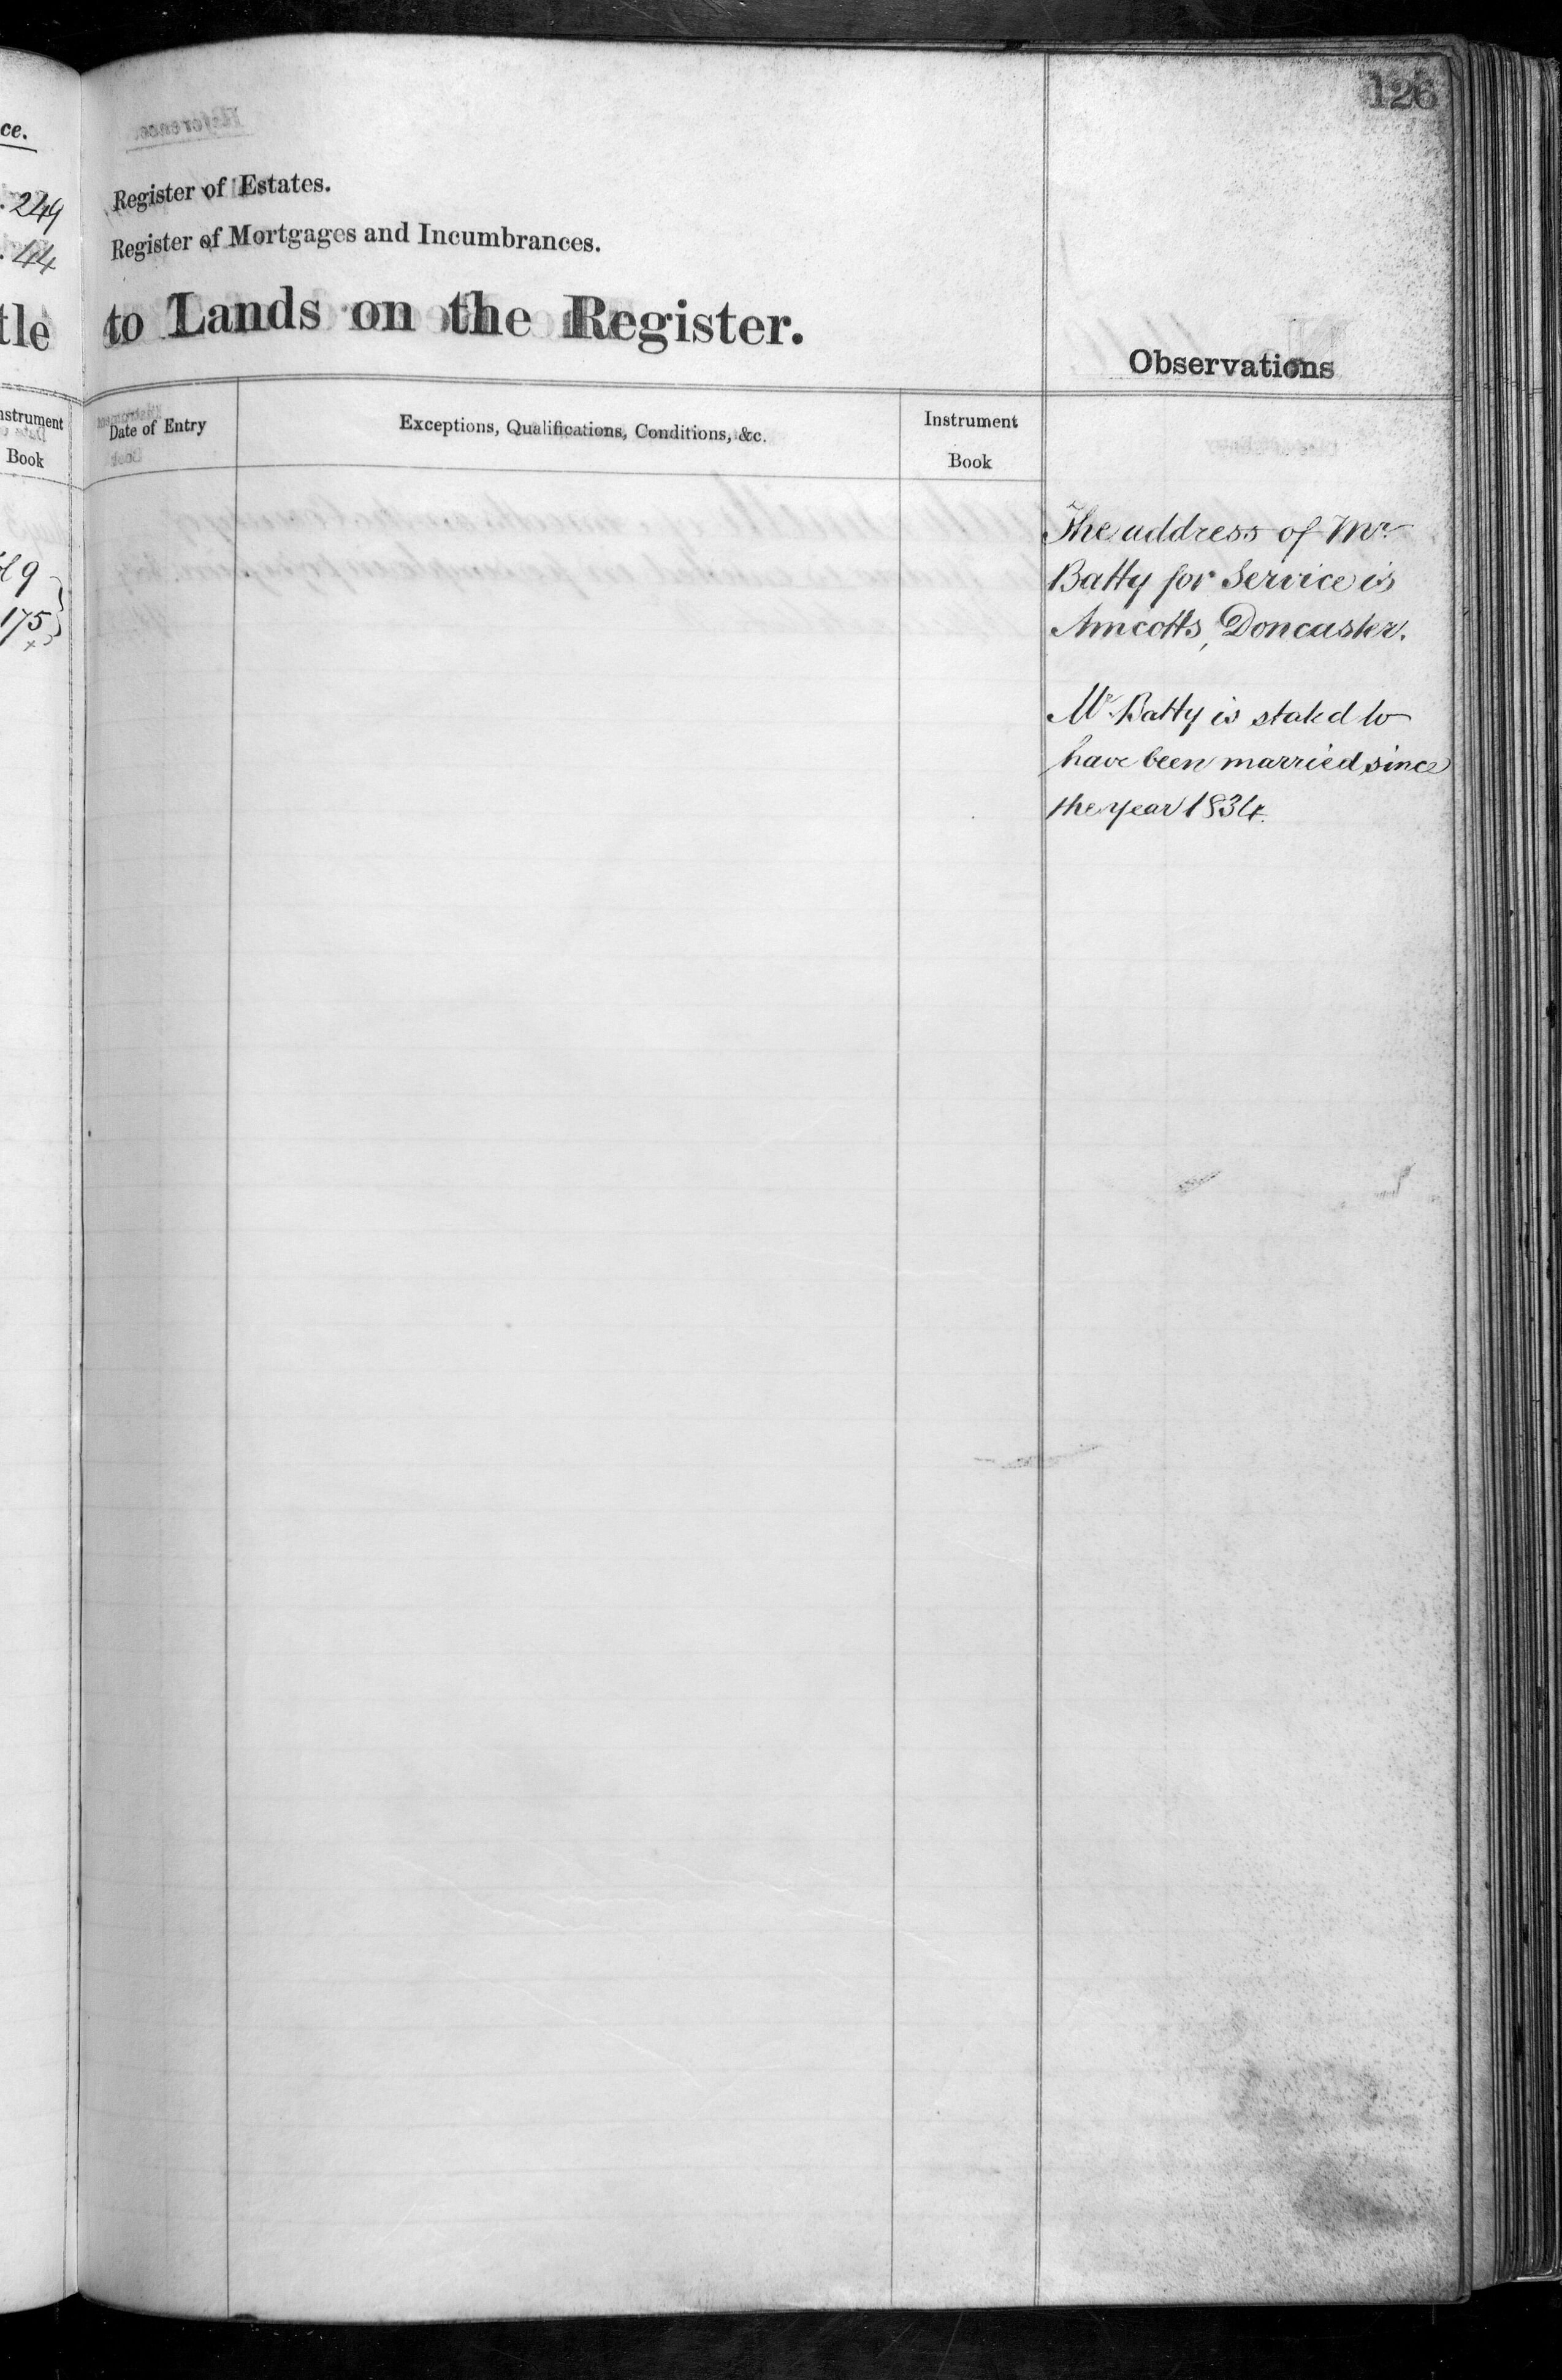 126
ce.
Register of Estates.
. 249
Register of Mortgages and Incumbrances.
. 44
tle to Lands on the Register.
Observations
nstrument
Book
Date of Entry
Exceptions, Qualifications, Conditions, &c.
Instrument
Book
9
175
The address of Mr.
Batty for Service is
Amcotts, Doncaster.
Mr. Batty is stated to
have been married since
the year 1834.